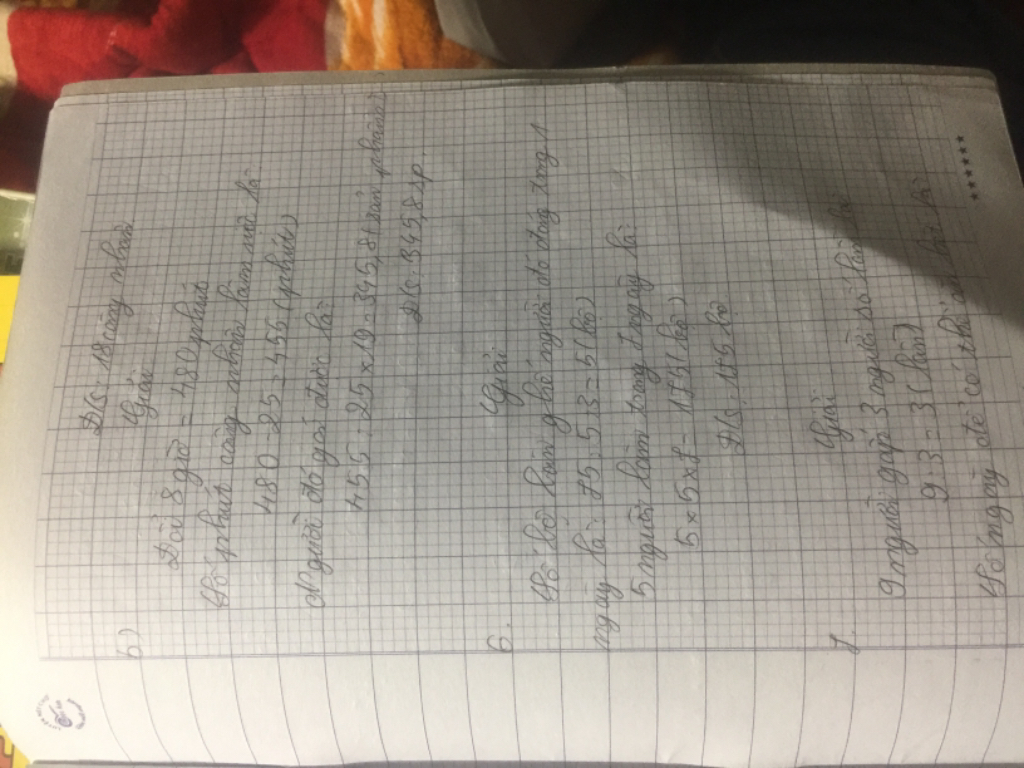 Đ/s: 18 công nhân
b) Giải
Đổi 8 giờ = 480 phút
Số phút công nhân làm mũ là
480 - 25 = 455 (phút)
Người đó gói được là:
455 : 25 x 19 = 345,8 (sản phẩm)
Đ/s: 345,8 sp
6. Giải
Số bộ bàn ghế người đó đóng trong 1
ngày là: 75 : 5 : 3 = 5 (bộ)
5 người làm trong 7 ngày là
5 x 5 x 7 = 175 (bộ)
Đ/s: 175 bộ
7. Giải
9 người gấp 3 người số lần là
9 : 3 = 3 (lần)
Số ngày để có thể ăn hết là